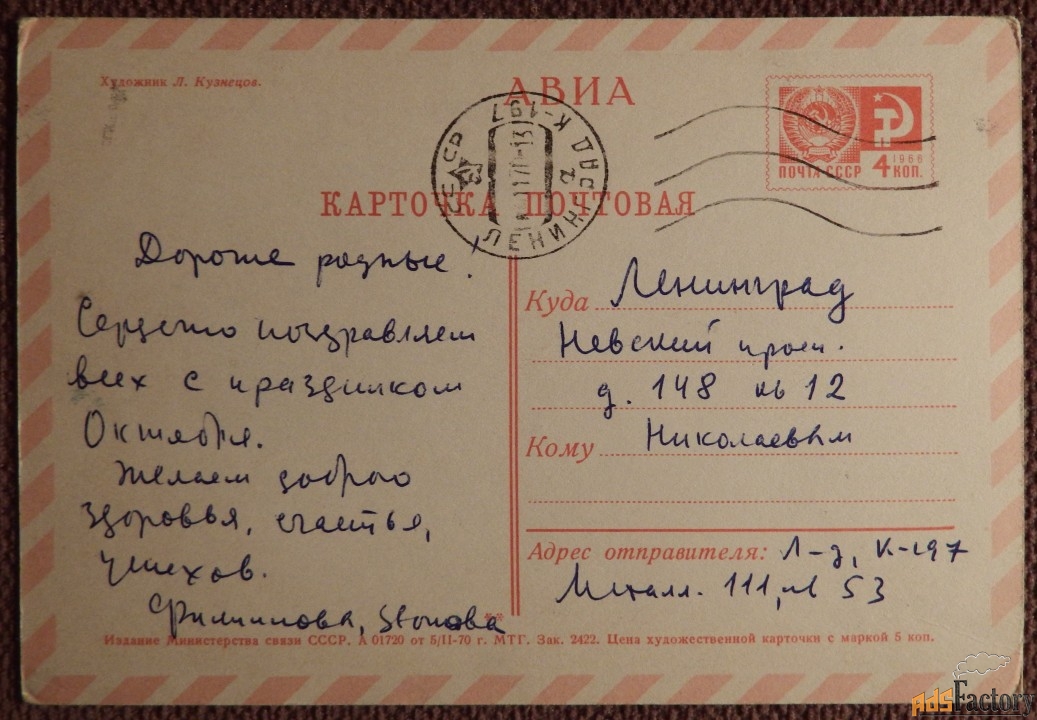 Художник Л. Кузнецов.
АВИА
ПОЧТА СССР
1966
4 КОП.
СССР
ЛЕНИНГРАД К-197
КАРТОЧКА ПОЧТОВАЯ
Дорогие родные!
Сердечно поздравляем
всех с праздником
Октября.
Желаем доброго
здоровья, счастья,
успехов.
Куда Ленинград
Невский просп.
д. 148 кв 12
Кому Николаевым
Адрес отправителя: Л-д, К-197
Металл. 111, кв 53
Издание Министерства связи СССР. А 01720 от 5/II-70 г. МТГ. Зак. 2422. Цена художественной карточки с маркой 5 коп.
AdsFactory